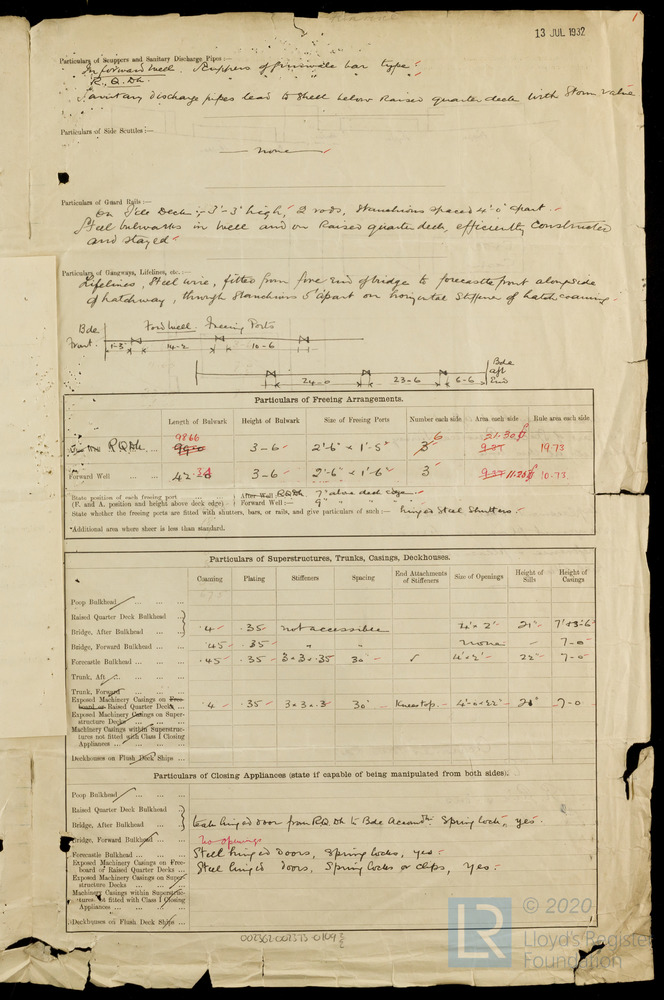 13 JUL 1932
1
Particulars of Scuppers and Sanitary Discharge Pipes :—
In forward well. Scuppers of bar type.
R.Q.Dk. " " "
Sanitary discharge pipes lead to shell below Raised quarter deck with Storm valve
Particulars of Side Scuttles :—
none
Particulars of Guard Rails :—
On Deck :- 3'-3" high, 2 rods, Stanchions spaced 4'-0" apart.
Steel bulwarks in well and on Raised quarter deck, efficiently constructed
and stayed
Particulars of Gangways, Lifelines, etc. :—
Lifelines, Steel wire, fitted from fore end of bridge to forecastle front alongside
of hatchway, through Stanchions 5' apart on horizontal stiffener of hatch coaming.
Bde Front. Ford well. Freeing Ports
1-3 14-2 10-6
24-0 23-6 6-6 Bde aft End
Particulars of Freeing Arrangements.
Length of Bulwark Height of Bulwark Size of Freeing Ports Number each side Area each side Rule area each side
R.Q.Dk. ... 98.66 3-6 2'-6" × 1'-5" 6 21.30 19.73
Forward Well ... ... 42. 3-6 2'-6" × 1'-6" 3 11.25 10.73
State position of each freeing port ... ... After Well R.Q.Dk 7" above deck edge
(F. and A. position and height above deck edge) Forward Well :— 9" " " "
State whether the freeing ports are fitted with shutters, bars, or rails, and give particulars of such :— hinged Steel Shutters.
*Additional area where sheer is less than standard.
Particulars of Superstructures, Trunks, Casings, Deckhouses.
Coaming Plating Stiffeners Spacing End Attachments of Stiffeners Size of Openings Height of Sills Height of Casings
Poop Bulkhead ... ... ...
Raised Quarter Deck Bulkhead ...
Bridge, After Bulkhead ... ... .4 .35 not accessible 4' × 2' 21"
Bridge, Forward Bulkhead ... ... .45 .35 " " none – 7-0
Forecastle Bulkhead ... ... ... .45 .35 3×3×.35 30" ✓ 4'×2' 22" 7-0
Trunk, Aft ... ... ...
Trunk, Forward ... ... ...
Exposed Machinery Casings on Freeboard or Raised Quarter Decks ... .4 .35 3×3×.3 30" Knees top. 4'-0×22" 7-0
Exposed Machinery Casings on Superstructure Decks ... ... ...
Machinery Casings within Superstructures not fitted with Class I Closing Appliances ... ... ...
Deckhouses on Flush Deck Ships ...
Particulars of Closing Appliances (state if capable of being manipulated from both sides).
Poop Bulkhead ... ... ...
Raised Quarter Deck Bulkhead ...
Bridge, After Bulkhead ... ... teak hinged door from R.Q.Dk to Bde Accomdn. Spring lock, yes.
Bridge, Forward Bulkhead ... ... No openings
Forecastle Bulkhead ... ... ... Steel hinged Doors, Spring locks, yes.
Exposed Machinery Casings on Freeboard or Raised Quarter Decks ... Steel hinged doors, Spring locks or clips, yes.
Exposed Machinery Casings on Superstructure Decks ... ... ...
Machinery Casings within Superstructures not fitted with Class I Closing Appliances ... ... ...
Deckhouses on Flush Deck Ships ...
002362-002373-0109 2/2
LR
© 2020
Lloyd's Register
Foundation